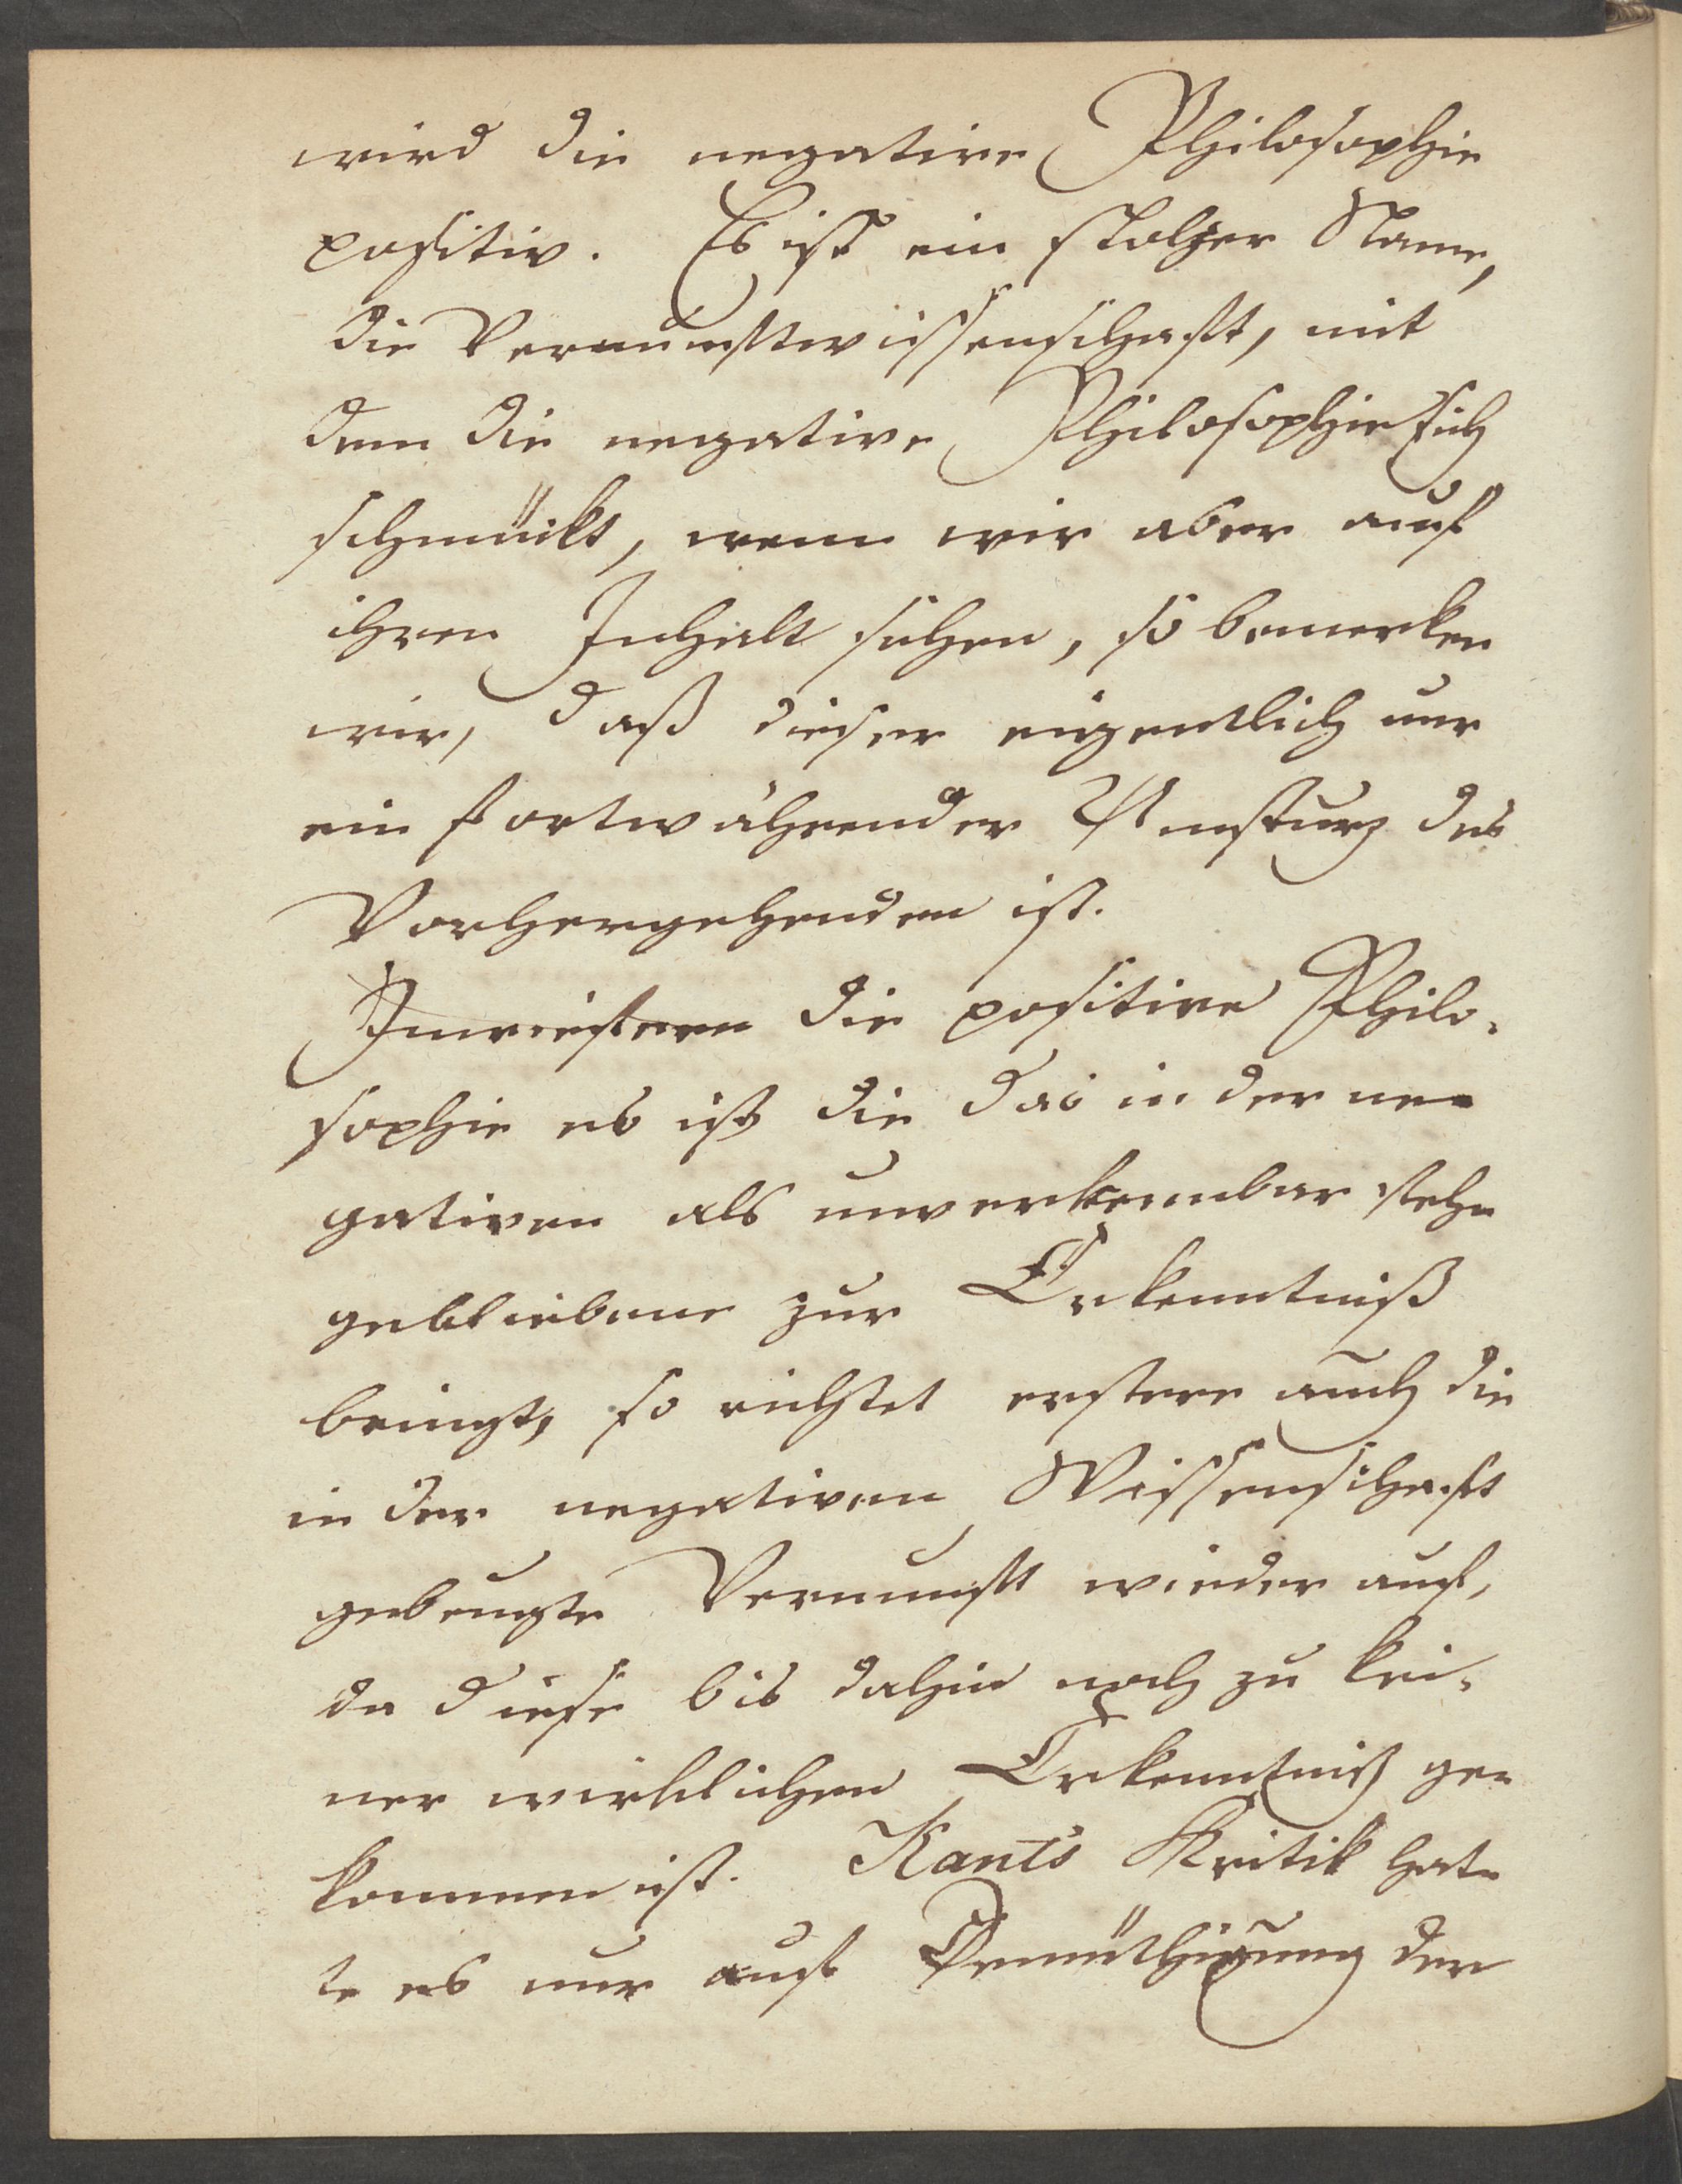 wird die negative Philosophie
positiv. Es ist ein stolzer Name,
die Vernunftwissenschaft, mit
dem die negative Philosophie sich
schmückt, wenn wir aber auf
ihren Inhalt sehen, so bemerken
wir, daß dieser eigentlich nur
ein fortwährender Umsturz des
Vorhergehenden ist.
Inwiefern die positive Philo-
sophie es ist die das in der ne-
gativen als unerkennbar stehn
gebliebene zur Erkenntniß
bringt, so richtet erstere auch die
in der negativen Wissenschaft
gebeugte Vernunft wieder auf,
da diese bis dahin noch zu kei-
ner wirklichen Erkenntniß ge-
kommen ist. Kants Kritik hat-
te es nur auf Demüthigung der